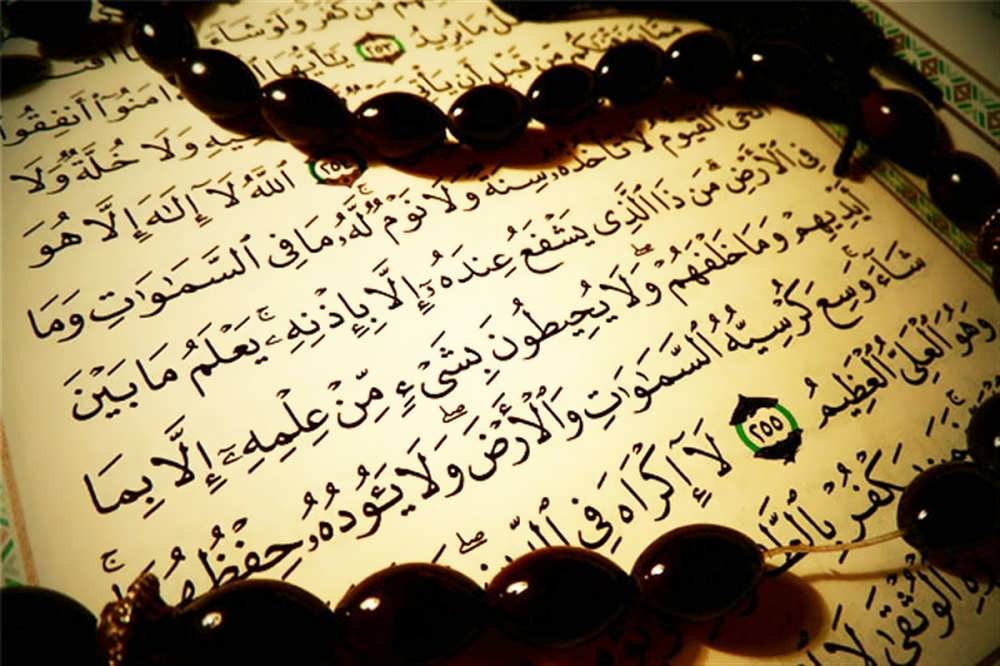 مَّن كَفَرَ وَلَوْ شَآءَ
مَا يُرِيدُ ٢٥٣ يَٰٓأَيُّهَا ءَامَنُوٓا۟ أَنفِقُوا۟
مِّن قَبْلِ أَن يَأْتِىَ فِيهِ وَلَا خُلَّةٌ وَلَا
٢٥٤ ٱللَّهُ لَآ إِلَٰهَ إِلَّا هُوَ
ٱلْحَىُّ ٱلْقَيُّومُ لَا تَأْخُذُهُۥ سِنَةٌ وَلَا نَوْمٌ ۚ لَّهُۥ مَا فِى ٱلسَّمَٰوَٰتِ وَمَا
فِى ٱلْأَرْضِ ۗ مَن ذَا ٱلَّذِى يَشْفَعُ عِندَهُۥٓ إِلَّا بِإِذْنِهِۦ ۚ يَعْلَمُ مَا بَيْنَ
أَيْدِيهِمْ وَمَا خَلْفَهُمْ ۖ وَلَا يُحِيطُونَ بِشَىْءٍ مِّنْ عِلْمِهِۦٓ إِلَّا بِمَا
شَآءَ ۚ وَسِعَ كُرْسِيُّهُ ٱلسَّمَٰوَٰتِ وَٱلْأَرْضَ ۖ وَلَا يَـُٔودُهُۥ حِفْظُهُمَا ۚ
وَهُوَ ٱلْعَلِىُّ ٱلْعَظِيمُ ٢٥٥ لَآ إِكْرَاهَ فِى
يَكْفُرْ
ٱلْوُثْقَىٰ لَا